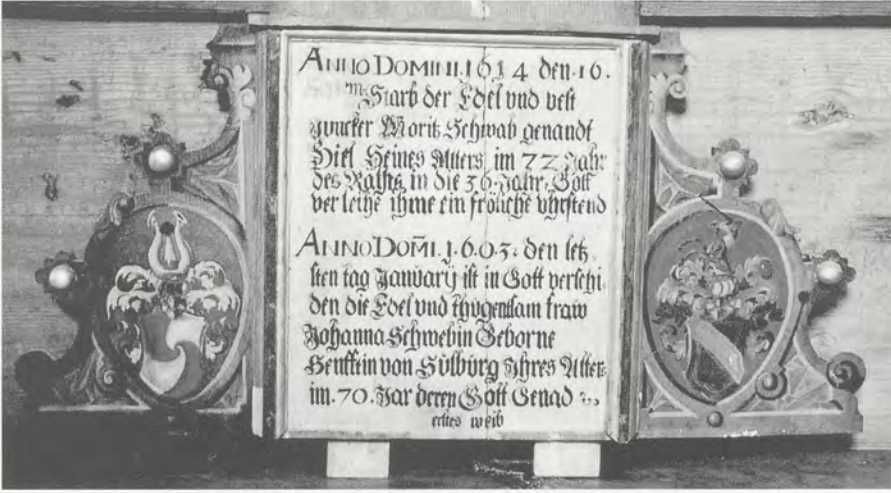 ANNO DOMINI. 1614 den. 16.
m Starb der Edel vnd vest
Juncker Moritz Schwab genandt
Diel Seines Alters im 72 Jahr
des Raths in die 36. Jahr. Gott
verleihe ihme ein fröliche vhrstend
ANNO DOM̄I. 1.6.0.3. den letz,
sten tag Januarÿ ist in Gott verschi,
den die Edel vnd thugentsam fraw
Johanna Schwebin Geborne
Senfftin von Sülburg Ihres Alters
im. 70. Jar deren Gott Genad
erstes weib